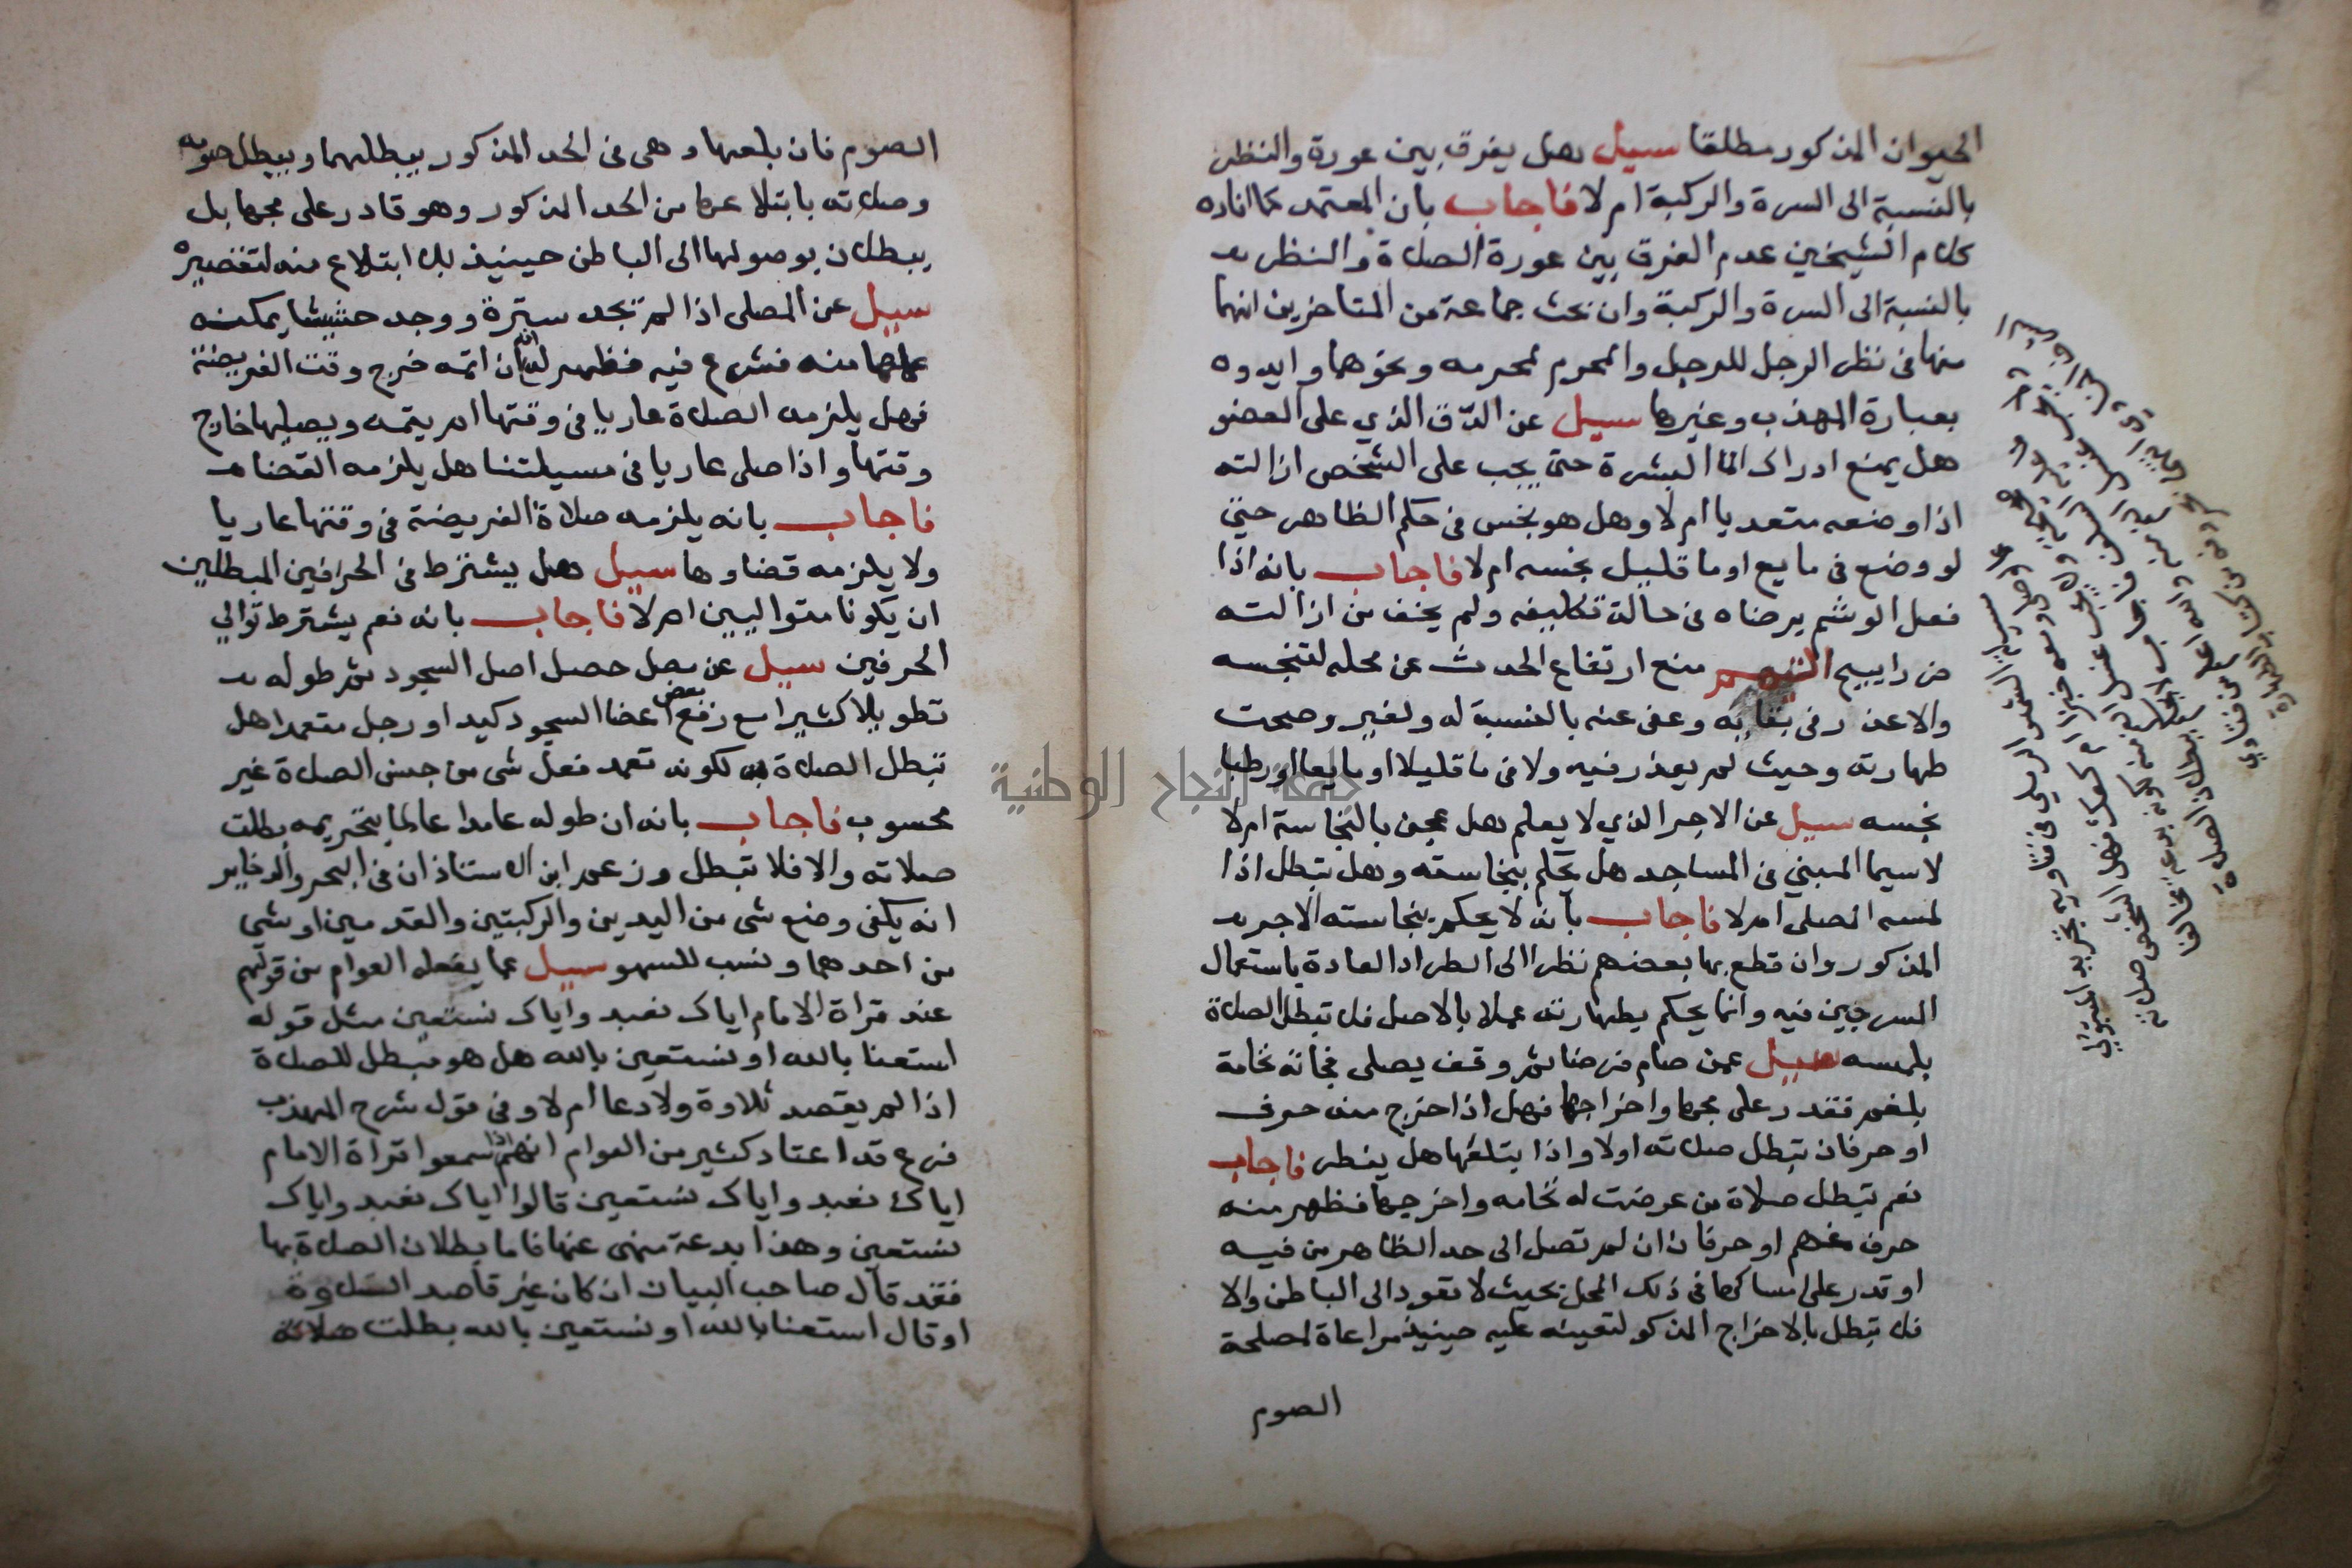 الحيوان المذكور مطلقا سيل هل يفرق بين عورة والنظر
بالنسبة الى السرة والركبة ام لا فاجاب بان المعتمد كما افاده
كلام الشيخين عدم الفرق بين عورة الصلاة والنظر
بالنسبة الى السرة والركبة وان بحث جماعة من المتاخرين انهما
منها في نظر الرجل للرجل والمحرم لمحرمه ونحوهما وايدوه
بعبارة المهذب وغيرها سيل عن الدق الذي على العضو
هل يمنع ادراك الما البشرة حتى يجب على الشخص ازالته
اذا وضعه متعديا ام لا وهل هو نجس في حكم الظاهر حتى
لو وضع في مايع او ما قليل نجسه ام لا فاجاب بانه اذا
فعل الوشم برضاه في حالة تكليفه ولم يخف من ازالته
ضررا يبيح التيمم منع ارتفاع الحدث عن محله لتنجسه
والا عذر في بقايه وعفى عنه بالنسبة له ولغيره وصحت
طهارته وحيث لم يعذر فيه ولاقى ما قليلا او مايعا او رطبا
نجسه سيل عن الاجر الذي لا يعلم هل عجن بالنجاسة ام لا
لا سيما المبني في المساجد هل نحكم بنجاسته وهل تبطل اذا
لمسه المصلي ام لا فاجاب بانه لا يحكم بنجاسته الاجر
المذكور وان قطع بها بعضهم نظرا الى اطراد العادة باستعمال
السرجين فيه وانما يحكم بطهارته عملا بالاصل فلا تبطل الصلاة
بلمسه سيل عمن صام فرضا ثم وقف يصلي فجاته نخامة
بلغم فقدر على مجها واخراجها فهل اذا خرج منه حرف
او حرفان تبطل صلاته اولا واذا ابتلعها هل يفطر فاجاب
نعم تبطل صلاة من عرضت له نخامه واخرجها فظهر منه
حرف مفهم او حرفان ان لم تصل الى حد الظاهر من فيه
او قدر على امساكها في ذلك المحل بحيث لا تعود الى الباطن والا
فلا تبطل بالاخراج المذكو لتعينه عليه حينيذ مراعاة لمصلحة
الصوم
سيل الشمس الرملي في فتاويه
الصوم فان بلعها وهي في الحد المذكور يبطلهما ويبطل صومه
وصلاته بابتلاعها من الحد المذكور وهو قادر على مجها بل
يبطلان بوصولها الى الباطن حينيذ بلا ابتلاع منه لتقصيره
سيل عن المصلي اذا لم تجد سترة ووجد حشيشا يمكنه
عملها منه فشرع فيه فظهر له ان اتمه خرج وقت الفريضة
فهل يلزمه الصلاة عاريا في وقتها ام يتمه ويصليها خارج
وقتها واذا صلى عاريا في مسيلتنا هل يلزمه القضا
فاجاب بانه يلزمه صلاة الفريضة في وقتها عاريا
ولا يلزمه قضاوها سيل هل يشترط في الحرفين المبطلين
ان يكونا متواليين ام لا فاجاب بانه نعم يشترط توالي
الحرفين سيل عن مصل حصل اصل السجود ثم طوله
تطويلا كثيرا مع رفع بعض اعضا السجود كيد او رجل متعمدا هل
تبطل الصلاة به لكونه تعمد فعل شي من جنس الصلاة غير
محسوب فاجاب بانه ان طوله عامدا عالما بتحريمه بطلت
صلاته والا فلا تبطل وزعم ابن الاستاذ ان في البحر والذخاير
انه يكفي وضع شي من اليدين والركبتين والقدمين او شي
من احدهما ونسب للسهو سيل عما يفعله العوام من قولهم
عند قراة الامام اياك نعبد واياك نستعين مثل قوله
استعنا بالله او نستعين بالله هل هو مبطل للصلاة
اذا لم يقصد تلاوة ولا دعا ام لا وفي قول شرح المهذب
فرع قد اعتاد كثير من العوام انهم اذا سمعوا قراة الامام
اياك نعبد واياك نستعين قالوا اياك نعبد واياك
نستعين وهذا بدعة منهى عنها فاما بطلان الصلاة بها
فقد قال صاحب البيان ان كان غير قاصد التلاوة
او قال استعنا بالله او نستعين بالله بطلت صلاته
جامعة النجاح الوطنية